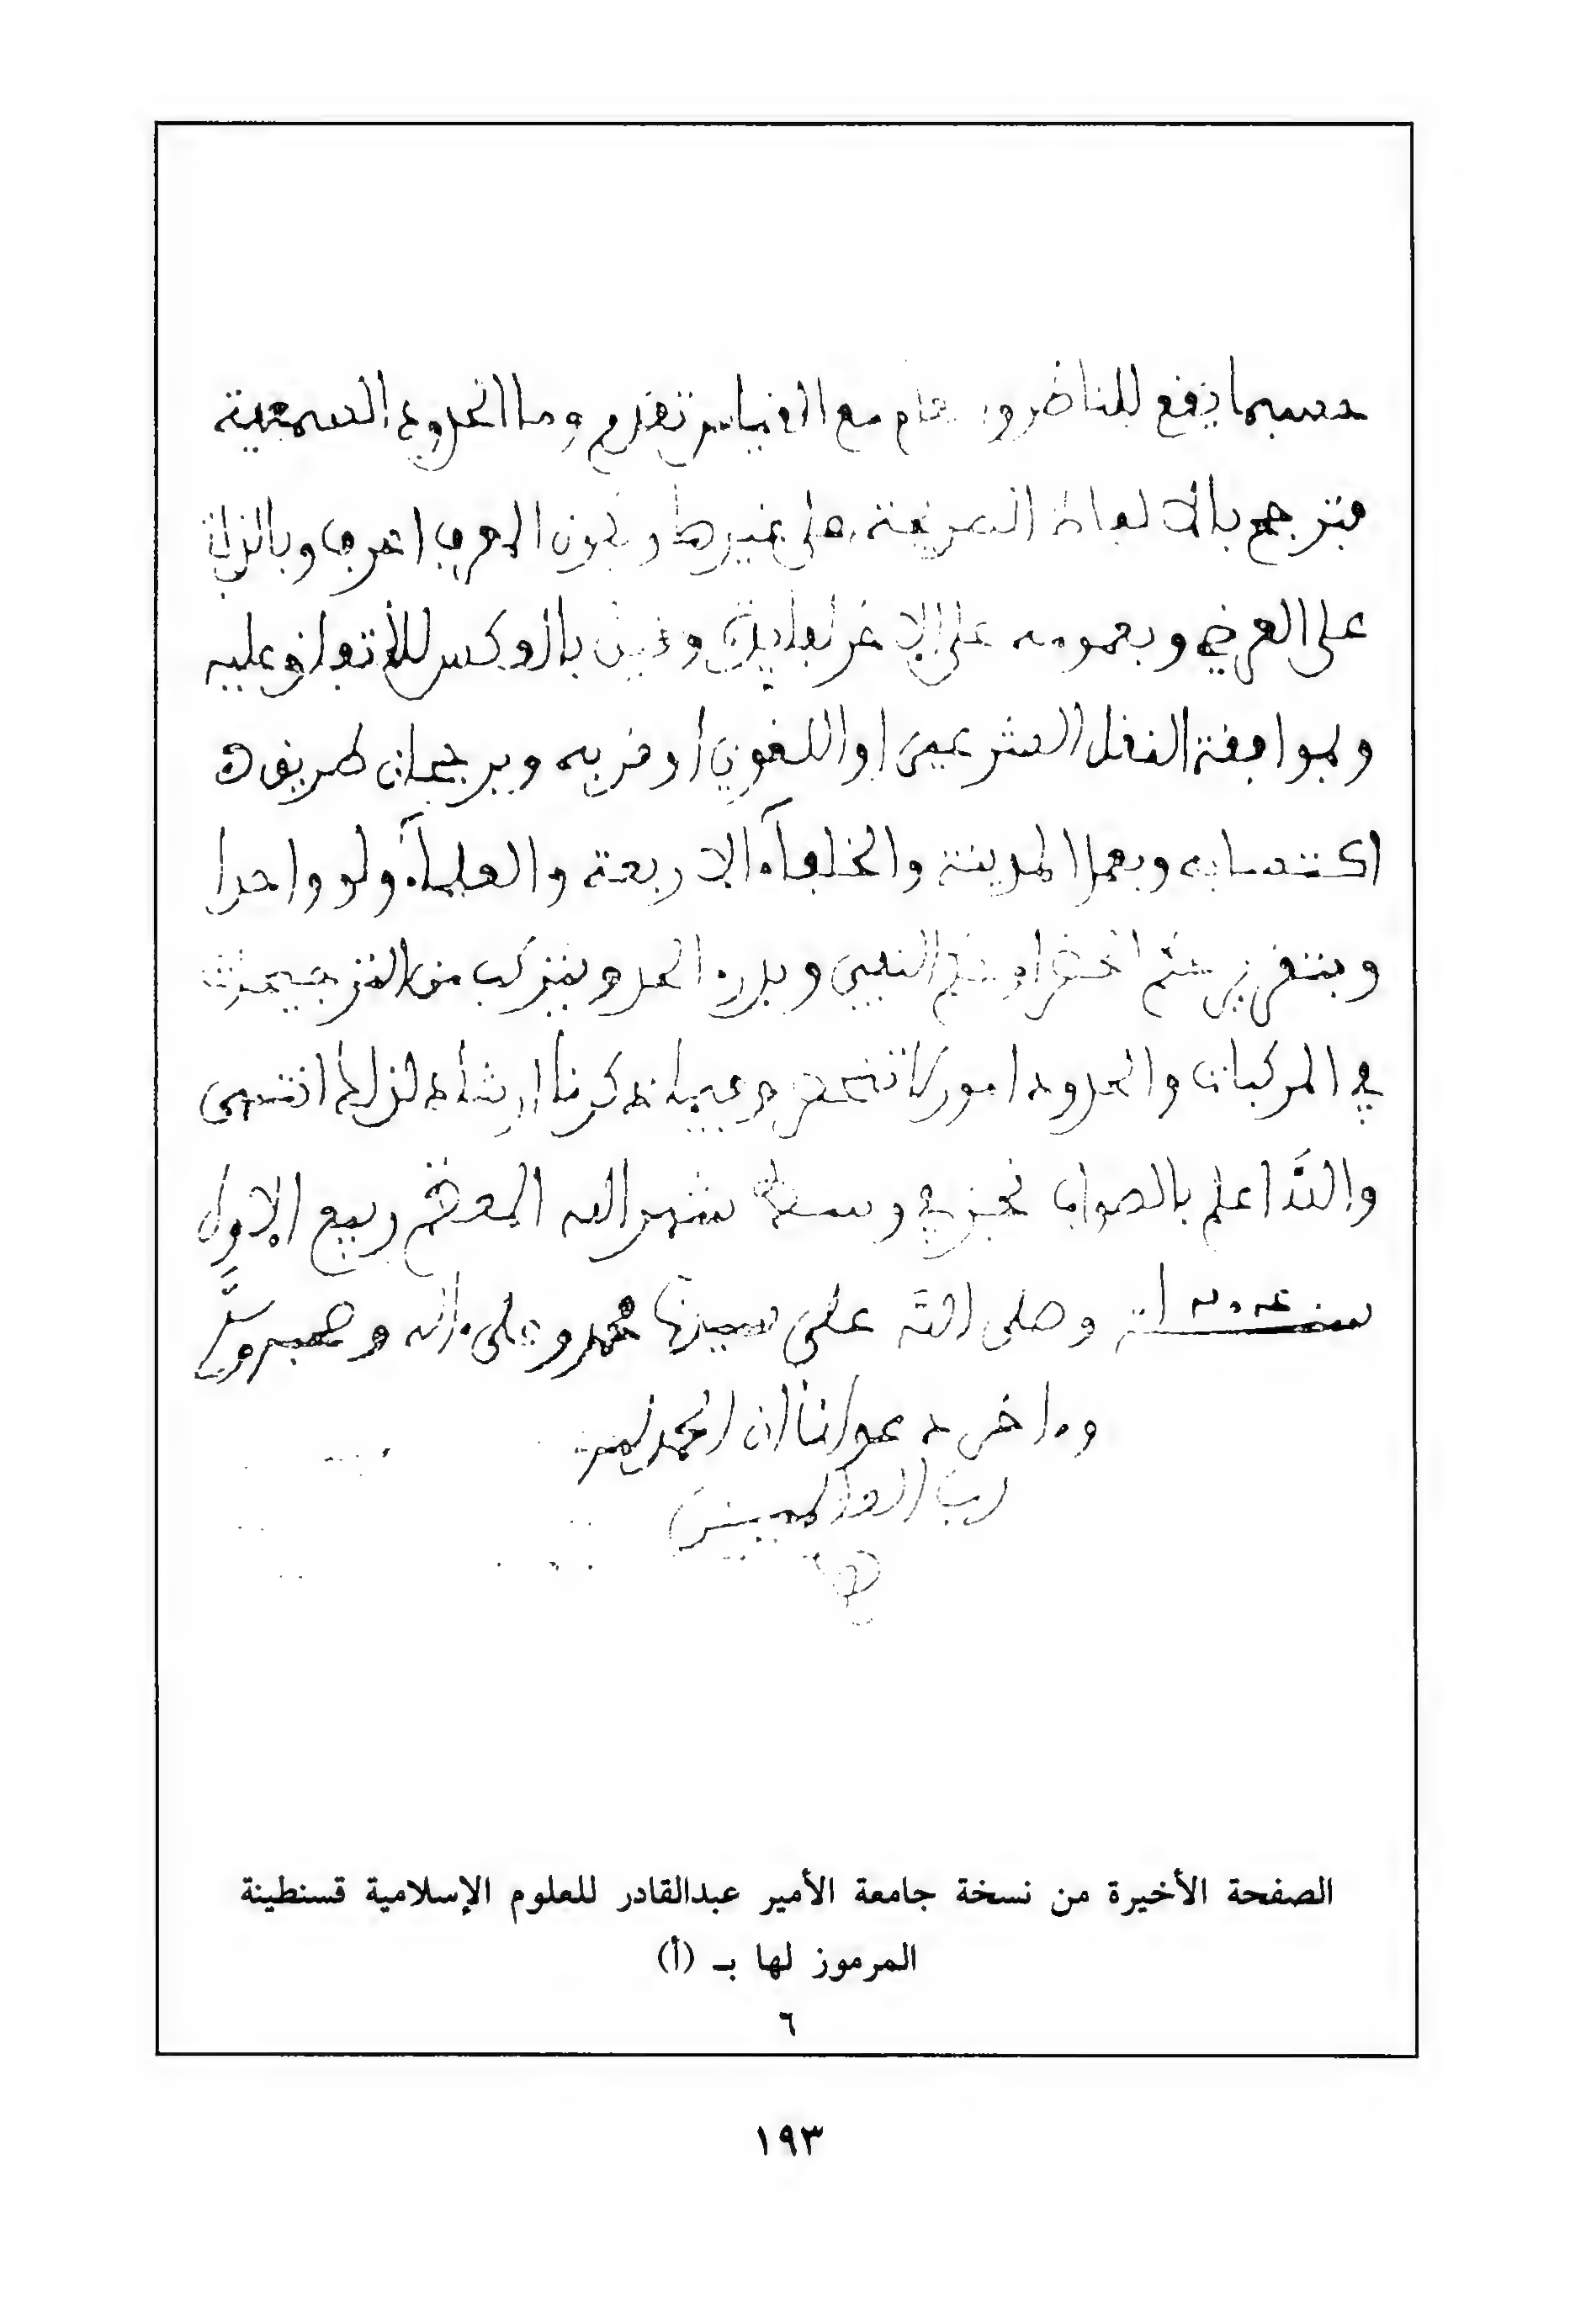 حسبما يقع للناظر والعام مع القياس تقدم وما الحدود السمعية
فترجح بالالفاظ الصريحة على غيرها وبكون المعرف اعرف وبالذاتي
على العرضي وبعمومه على الاخر لفايدته وقيل بالعكس للاتفاق عليه
وبموافقة النقل الشرعي او اللغوي او قربه وبرجحان طريق
اكتسابه وبعمل المدينة والخلفآء الاربعة والعلمآء ولو واحدا
وبتقرير حكم الحظر او حكم النفي وبدرء الحد ويتركب من الترجيحات
في المركبات والحدود امور لا تنحصر وفيما ذكرنا ارشاد لذلك انتهى
والله اعلم بالصواب نجز في وسط شهر الله المعظم ربيع الاول
سنة وصلى الله على سيدنا محمد وعلى ءاله وصحبه وسلم
وءاخر دعوانا ان الحمد لله
رب العالمين
الصفحة الأخيرة من نسخة جامعة الأمير عبدالقادر للعلوم الإسلامية قسنطينة
المرموز لها بـ (أ)
٦
١٩٣